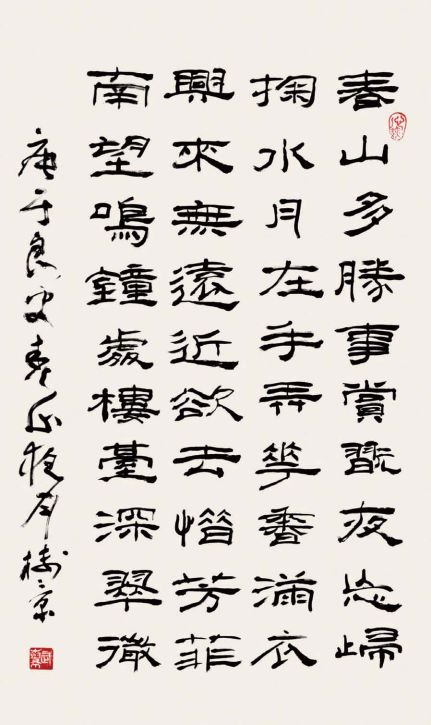 春山多勝事賞翫夜忘歸
掬水月在手弄華香滿衣
興來無遠近欲去惜芳菲
南望鳴鐘處樓臺深翠微
唐于良史春山夜月樹京